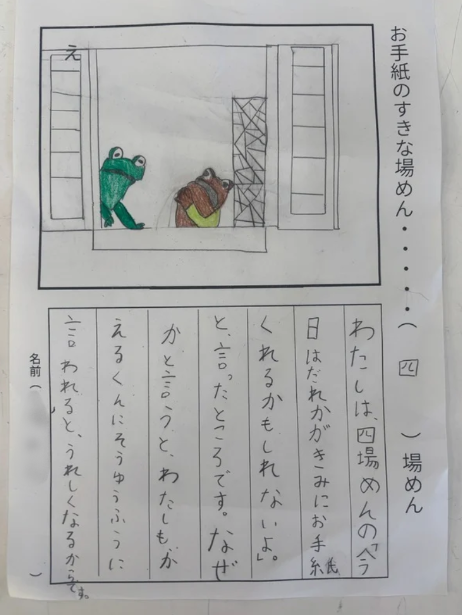 お手紙のすきな場めん・・・・・・（ 四 ）場めん
え
わたしは、四場めんの「今
日はだれかがきみにお手紙
くれるかもしれないよ」。
と、言ったところです。なぜ
かと言うと、わたしも、が
えるくんにそうゆうふうに
言われると、うれしくなるからです。
名前（ ）